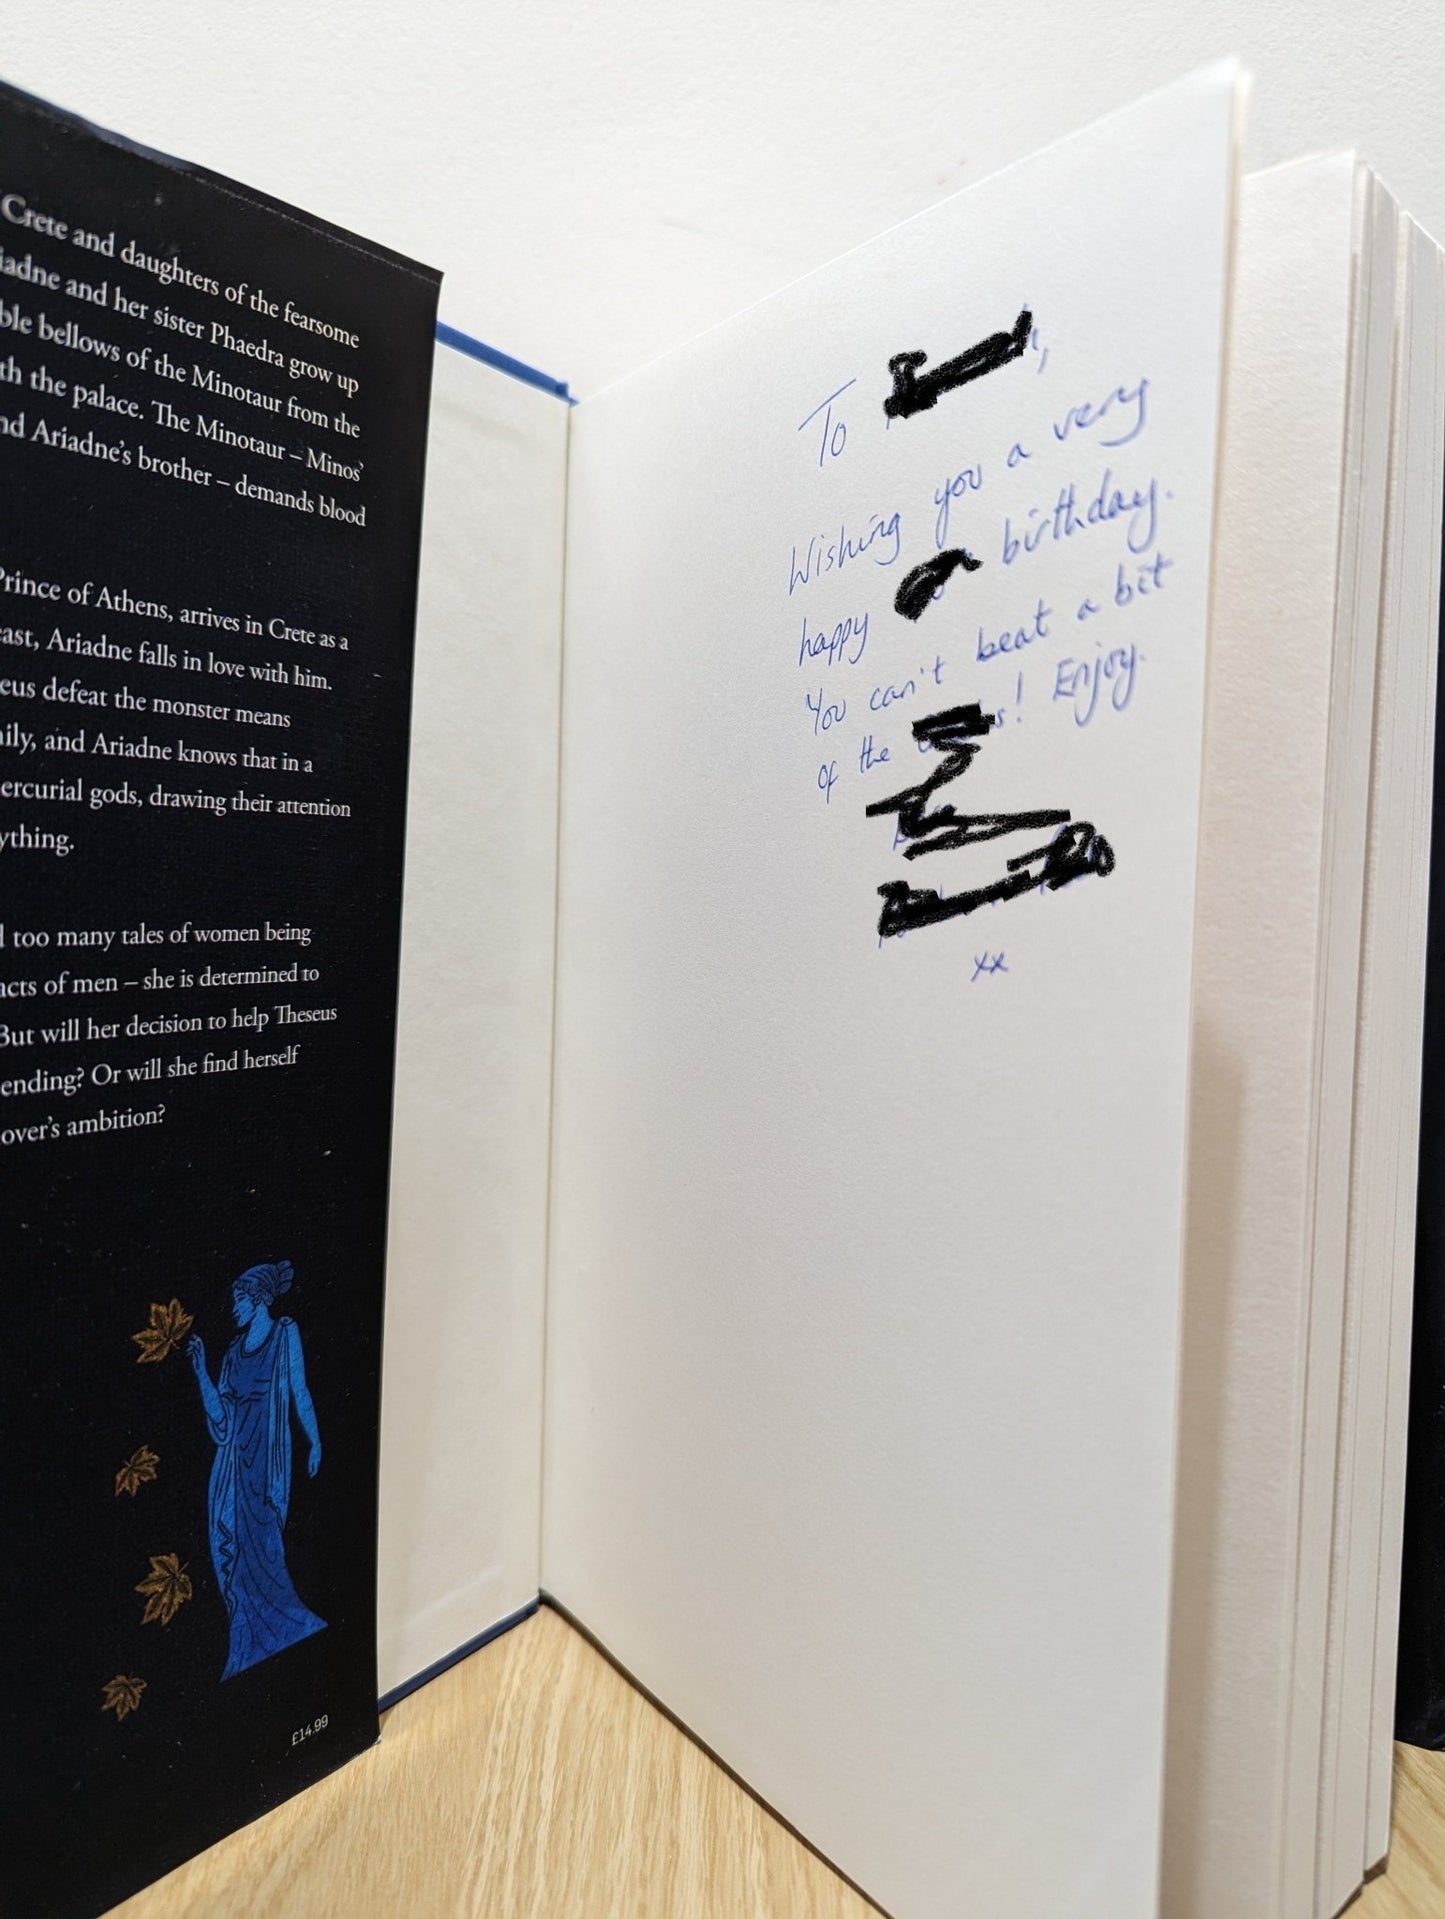 Crete and daughters of the fearsome
iadne and her sister Phaedra grow up
ble bellows of the Minotaur from the
th the palace. The Minotaur – Minos’
nd Ariadne’s brother – demands blood
Prince of Athens, arrives in Crete as a
east, Ariadne falls in love with him.
eus defeat the monster means
ily, and Ariadne knows that in a
ercurial gods, drawing their attention
ything.
too many tales of women being
acts of men – she is determined to
But will her decision to help Theseus
ending? Or will she find herself
over’s ambition?
£14.99
To
Wishing you a very
happy birthday.
You can't beat a bit
of the ! Enjoy.
xx